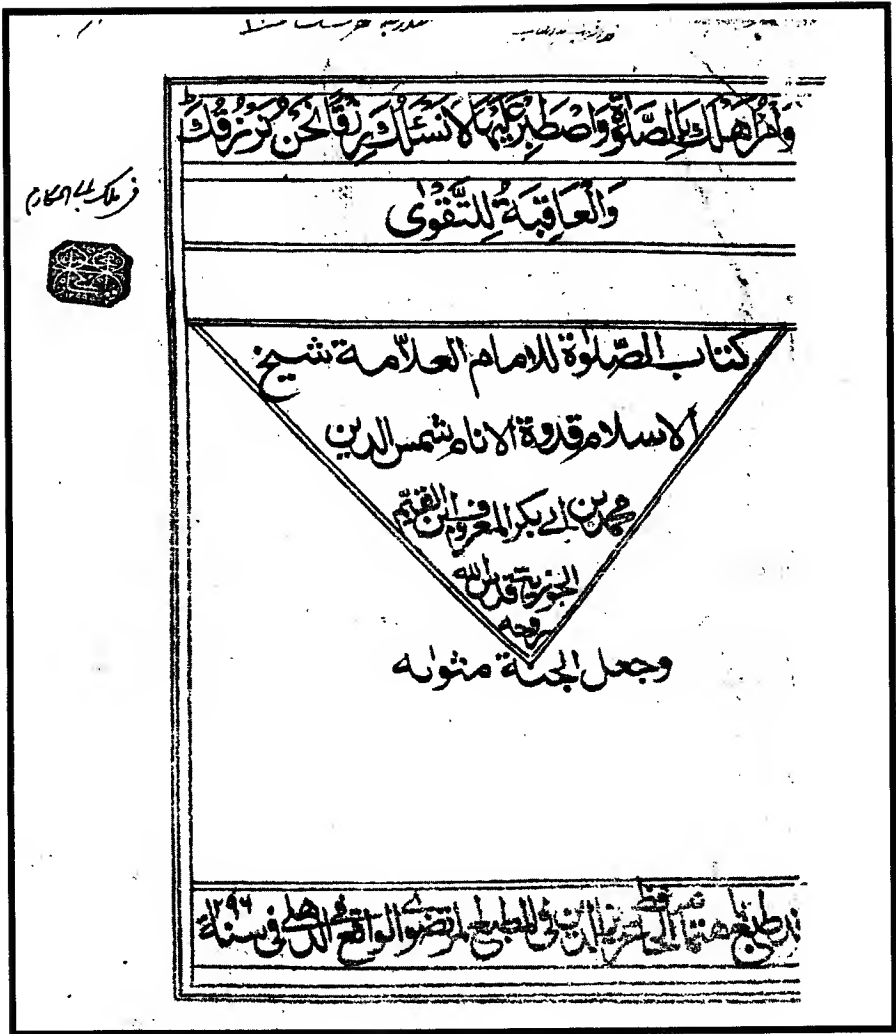 وَأْمُرْ أَهْلَكَ بِالصَّلٰوةِ وَاصْطَبِرْ عَلَيْهَا لَا نَسْئَلُكَ رِزْقًا نَحْنُ نَرْزُقُكَ ط
وَالْعَاقِبَةُ لِلتَّقْوٰى
في ملك ابي المكارم
كتاب الصّلٰوة للامام العلاّمة شيخ
الاسلام قدوة الانام شمس الدين
محمد بن ابي بكر المعروف بابن القيّم
الجوزية قدس الله
روحه
وجعل الجنة مثواه
قد طبع باهتمام الحافظ عزيز الدين في المطبع المرتضوي الواقع في الدهلي في سنة ١٢٩٦